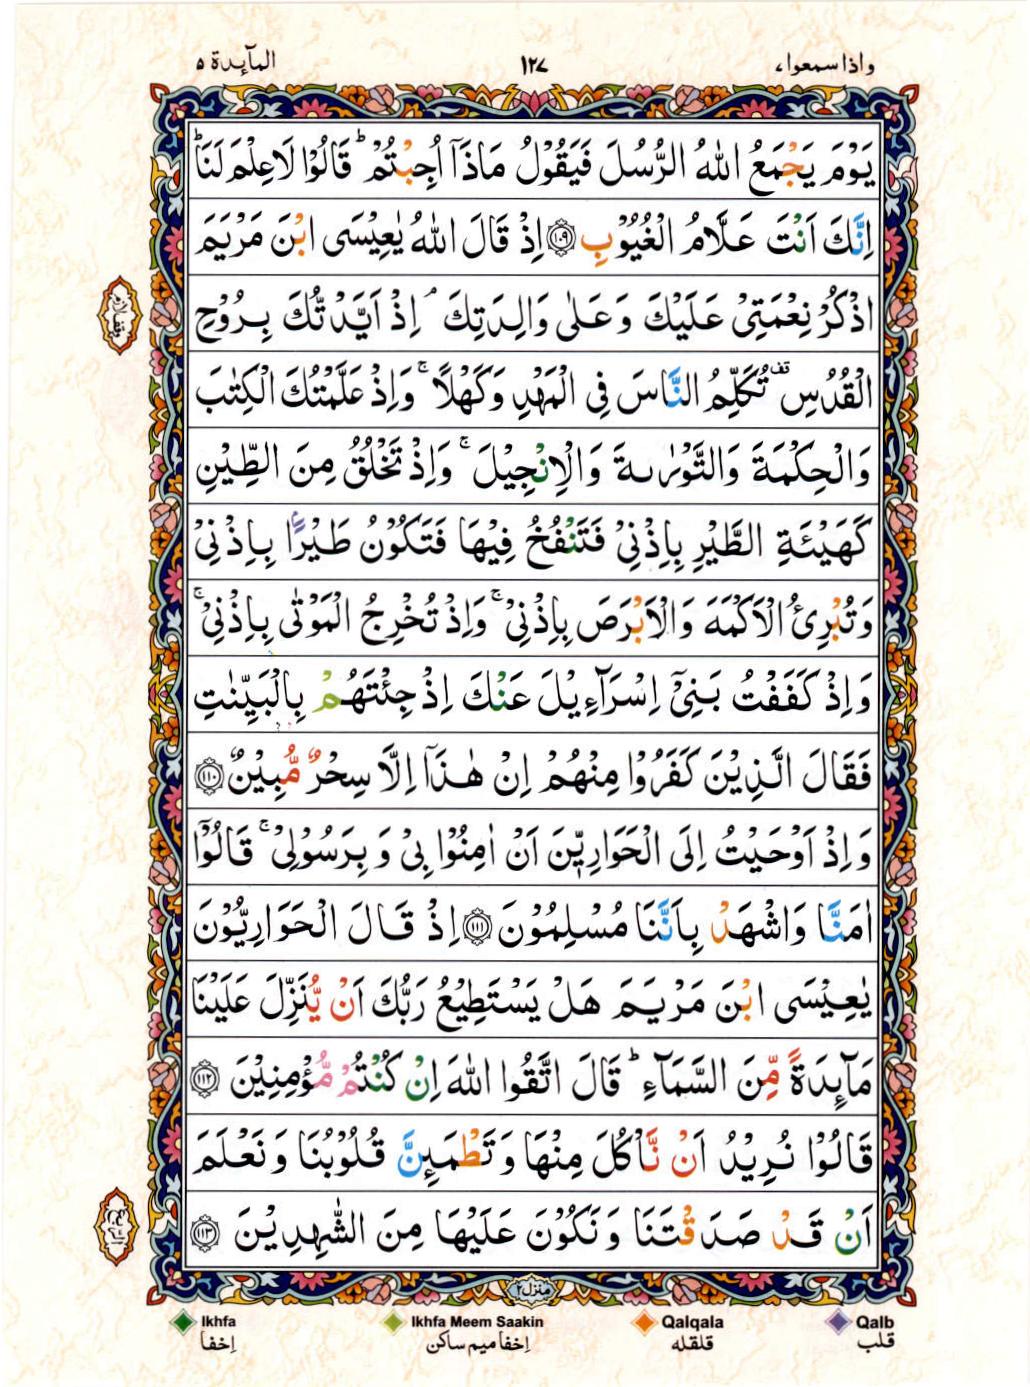 واذا سمعوا، ١٢٧ المآيدة ٥
يَوْمَ يَجْمَعُ اللّٰهُ الرُّسُلَ فَيَقُوْلُ مَاذَاۤ اُجِبْتُمْ ؕ قَالُوْا لَا عِلْمَ لَنَا ؕ
اِنَّكَ اَنْتَ عَلَّامُ الْغُيُوْبِ ﴿۱۰۹﴾ اِذْ قَالَ اللّٰهُ يٰعِيْسَى ابْنَ مَرْيَمَ
اذْكُرْ نِعْمَتِيْ عَلَيْكَ وَعَلٰى وَالِدَتِكَ ۘ اِذْ اَيَّدْتُّكَ بِرُوْحِ
وقف لازم
الْقُدُسِ ۟ تُكَلِّمُ النَّاسَ فِى الْمَهْدِ وَكَهْلًا ۚ وَاِذْ عَلَّمْتُكَ الْكِتٰبَ
وَالْحِكْمَةَ وَالتَّوْرٰىةَ وَالْاِنْجِيْلَ ۚ وَاِذْ تَخْلُقُ مِنَ الطِّيْنِ
كَهَيْئَةِ الطَّيْرِ بِاِذْنِيْ فَتَنْفُخُ فِيْهَا فَتَكُوْنُ طَيْرًۢا بِاِذْنِيْ
وَتُبْرِئُ الْاَكْمَهَ وَالْاَبْرَصَ بِاِذْنِيْ ۚ وَاِذْ تُخْرِجُ الْمَوْتٰى بِاِذْنِيْ ۚ
وَاِذْ كَفَفْتُ بَنِيْۤ اِسْرَآءِيْلَ عَنْكَ اِذْ جِئْتَهُمْ بِالْبَيِّنٰتِ
فَقَالَ الَّذِيْنَ كَفَرُوْا مِنْهُمْ اِنْ هٰذَاۤ اِلَّا سِحْرٌ مُّبِيْنٌ ﴿۱۱۰﴾
وَاِذْ اَوْحَيْتُ اِلَى الْحَوَارِيّٖنَ اَنْ اٰمِنُوْا بِيْ وَبِرَسُوْلِيْ ۚ قَالُوْۤا
اٰمَنَّا وَاشْهَدْ بِاَنَّنَا مُسْلِمُوْنَ ﴿۱۱۱﴾ اِذْ قَالَ الْحَوَارِيُّوْنَ
يٰعِيْسَى ابْنَ مَرْيَمَ هَلْ يَسْتَطِيْعُ رَبُّكَ اَنْ يُّنَزِّلَ عَلَيْنَا
مَآىِٕدَةً مِّنَ السَّمَآءِ ؕ قَالَ اتَّقُوا اللّٰهَ اِنْ كُنْتُمْ مُّؤْمِنِيْنَ ﴿۱۱۲﴾
قَالُوْا نُرِيْدُ اَنْ نَّاْكُلَ مِنْهَا وَتَطْمَىِٕنَّ قُلُوْبُنَا وَنَعْلَمَ
اَنْ قَدْ صَدَقْتَنَا وَنَكُوْنَ عَلَيْهَا مِنَ الشّٰهِدِيْنَ ﴿۱۱۳﴾
منزل ٢
Ikhfa Ikhfa Meem Saakin Qalqala Qalb
اِخفا اِخفا میم ساکن قلقله قلب